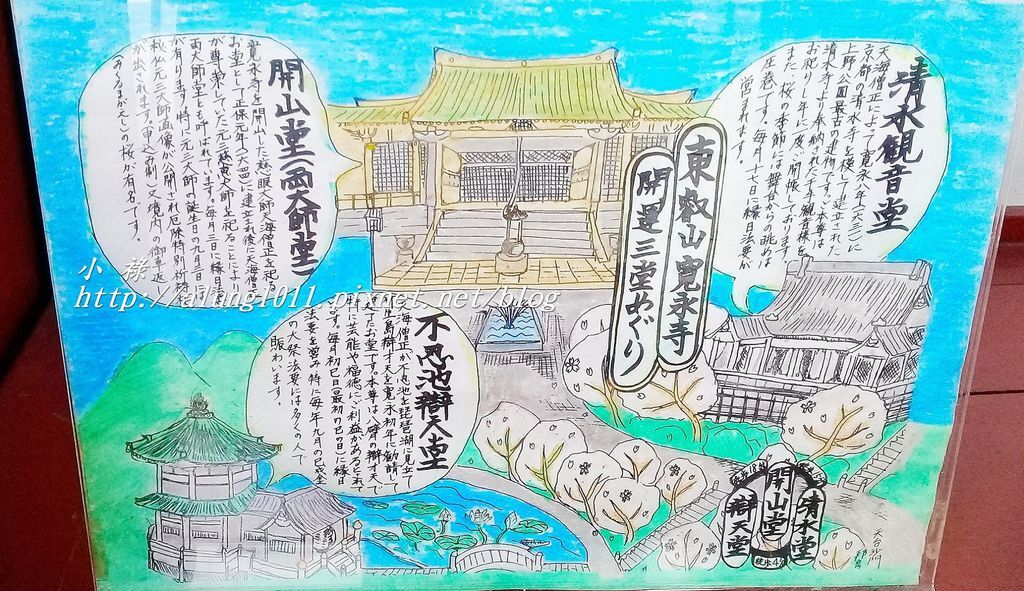 清水観音堂
天海僧正によって寛永八年(一六三一)に
京都の清水寺を模して建立された
上野公園最古の建物です。ご本尊は
清水寺より奉納された千手観音様を
お祀りし年に一度ご開帳しております。
また、桜の季節には舞台からの眺めは
圧巻です。毎月十七日に縁日法要が
営まれます。
東叡山寛永寺
開運三堂めぐり
開山堂(両大師堂)
寛永寺を開山した慈眼大師天海僧正を祀る
お堂として正保元年(一六四四)に建立され後に天海僧
が尊崇していた元三慈恵大師を祀ることにより
両大師堂とも呼ばれています。毎月三日に縁日法
が有ります。特に元三大師の誕生日の九月三日
秘仏元三大師画像が公開され厄除特別祈祷
が出されます。(申込み制)又境内の御車返
の桜が有名です。
不忍池辯天堂
海僧正が不忍池を琵琶湖に見立て
生島辯才天を寛永初年に勧請して
建てたお堂です。本尊は八臂の辯才天で
特に芸能や福徳にご利益があるとされて
ます。毎月初巳日(最初の巳の日)に縁日
法要を営み特に毎年九月の巳成金
の大祭法要には多くの人で
賑わいます。
清水堂
開山堂
辯天堂
小祿
http://aling1011.pixnet.net/blog